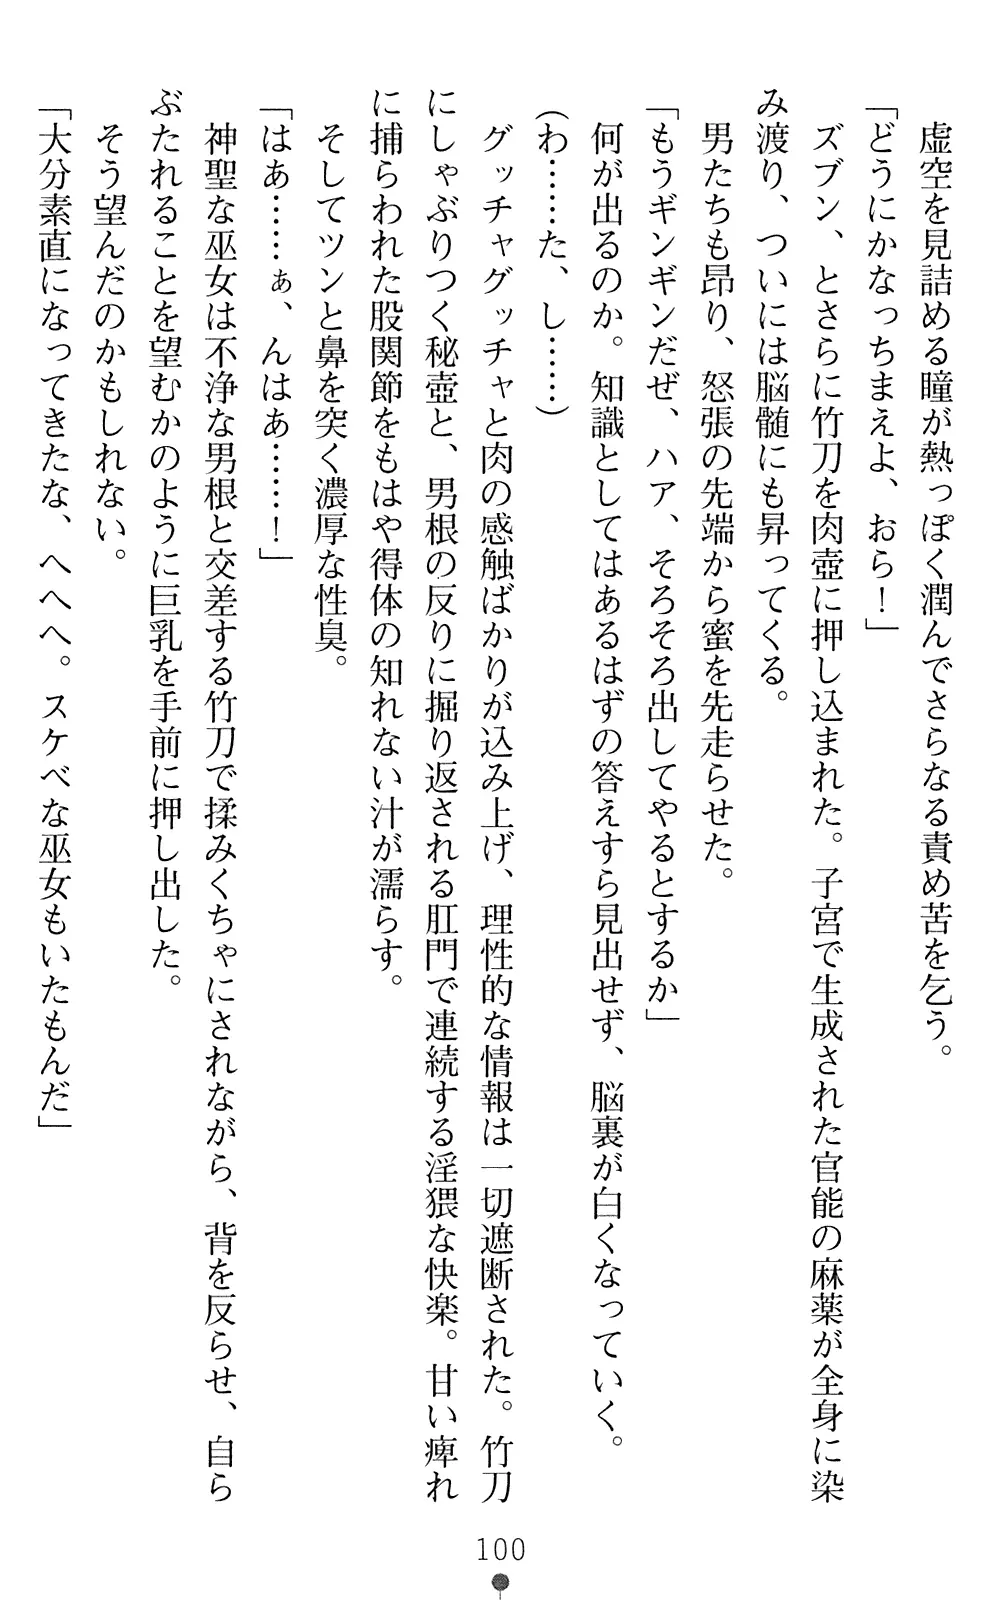 虚空を見詰める瞳が熱っぽく潤んでさらなる責め苦を乞う。
「どうにかなっちまえよ、おら！」
ズブン、とさらに竹刀を肉壺に押し込まれた。子宮で生成された官能の麻薬が全身に染
み渡り、ついには脳髄にも昇ってくる。
男たちも昂り、怒張の先端から蜜を先走らせた。
「もうギンギンだぜ、ハア、そろそろ出してやるとするか」
何が出るのか。知識としてはあるはずの答えすら見出せず、脳裏が白くなっていく。
（わ……た、し……）
グッチャグッチャと肉の感触ばかりが込み上げ、理性的な情報は一切遮断された。竹刀
にしゃぶりつく秘壺と、男根の反りに掘り返される肛門で連続する淫猥な快楽。甘い痺れ
に捕らわれた股関節をもはや得体の知れない汁が濡らす。
そしてツンと鼻を突く濃厚な性臭。
「はあ……ぁ、んはあ……！」
神聖な巫女は不浄な男根と交差する竹刀で揉みくちゃにされながら、背を反らせ、自ら
ぶたれることを望むかのように巨乳を手前に押し出した。
そう望んだのかもしれない。
「大分素直になってきたな、へへへ。スケベな巫女もいたもんだ」
100